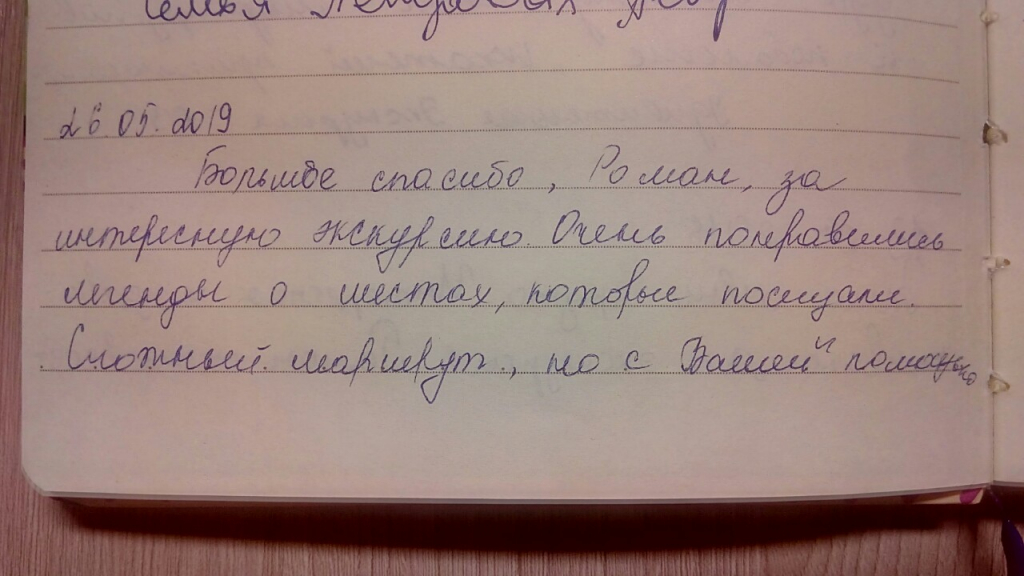 семья
26.05.2019
Большое спасибо, Роман, за
интересную экскурсию. Очень понравились
легенды о местах, которые посещали.
Сложный маршрут, но с Вашей помощью